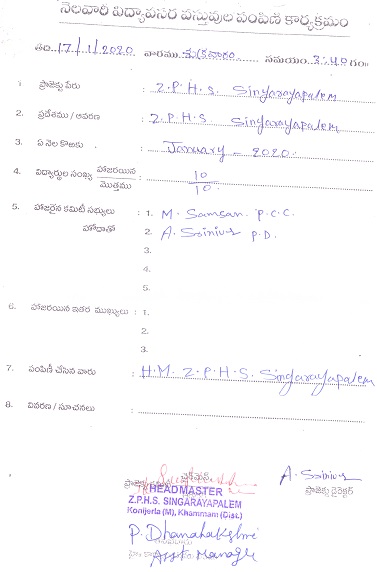 నెలవారీ విద్యావసర వస్తువుల పంపిణీ కార్యక్రమం
తేది 17/1/2020 వారము శుక్రవారం సమయం 3:40 గం॥
1. ప్రాజెక్టు పేరు : Z.P.H.S. Singarayapalem
2. ప్రదేశము / ఆవరణ : Z.P.H.S. Singarayapalem
3. ఏ నెల కొఱకు : January - 2020.
4. విద్యార్థుల సంఖ్య హాజరయిన / మొత్తము : 10 / 10
5. హాజరైన కమిటీ సభ్యులు : 1. M. Samsan P.C.C.
హోదాతో 2. A. Srinivas P.D.
3.
4.
5.
6. హాజరయిన ఇతర ముఖ్యులు : 1.
2.
3.
7. పంపిణీ చేసిన వారు : H.M. Z.P.H.S. Singarayapalem
8. వివరణ / సూచనలు :
చైర్మెన్ A. Srinivas
ప్రాజెక్టు డైరెక్టర్
HEADMASTER
Z.P.H.S. SINGARAYAPALEM
Konijerla (M), Khammam (Dist.)
P. Dhanalakshmi
Asst Manager